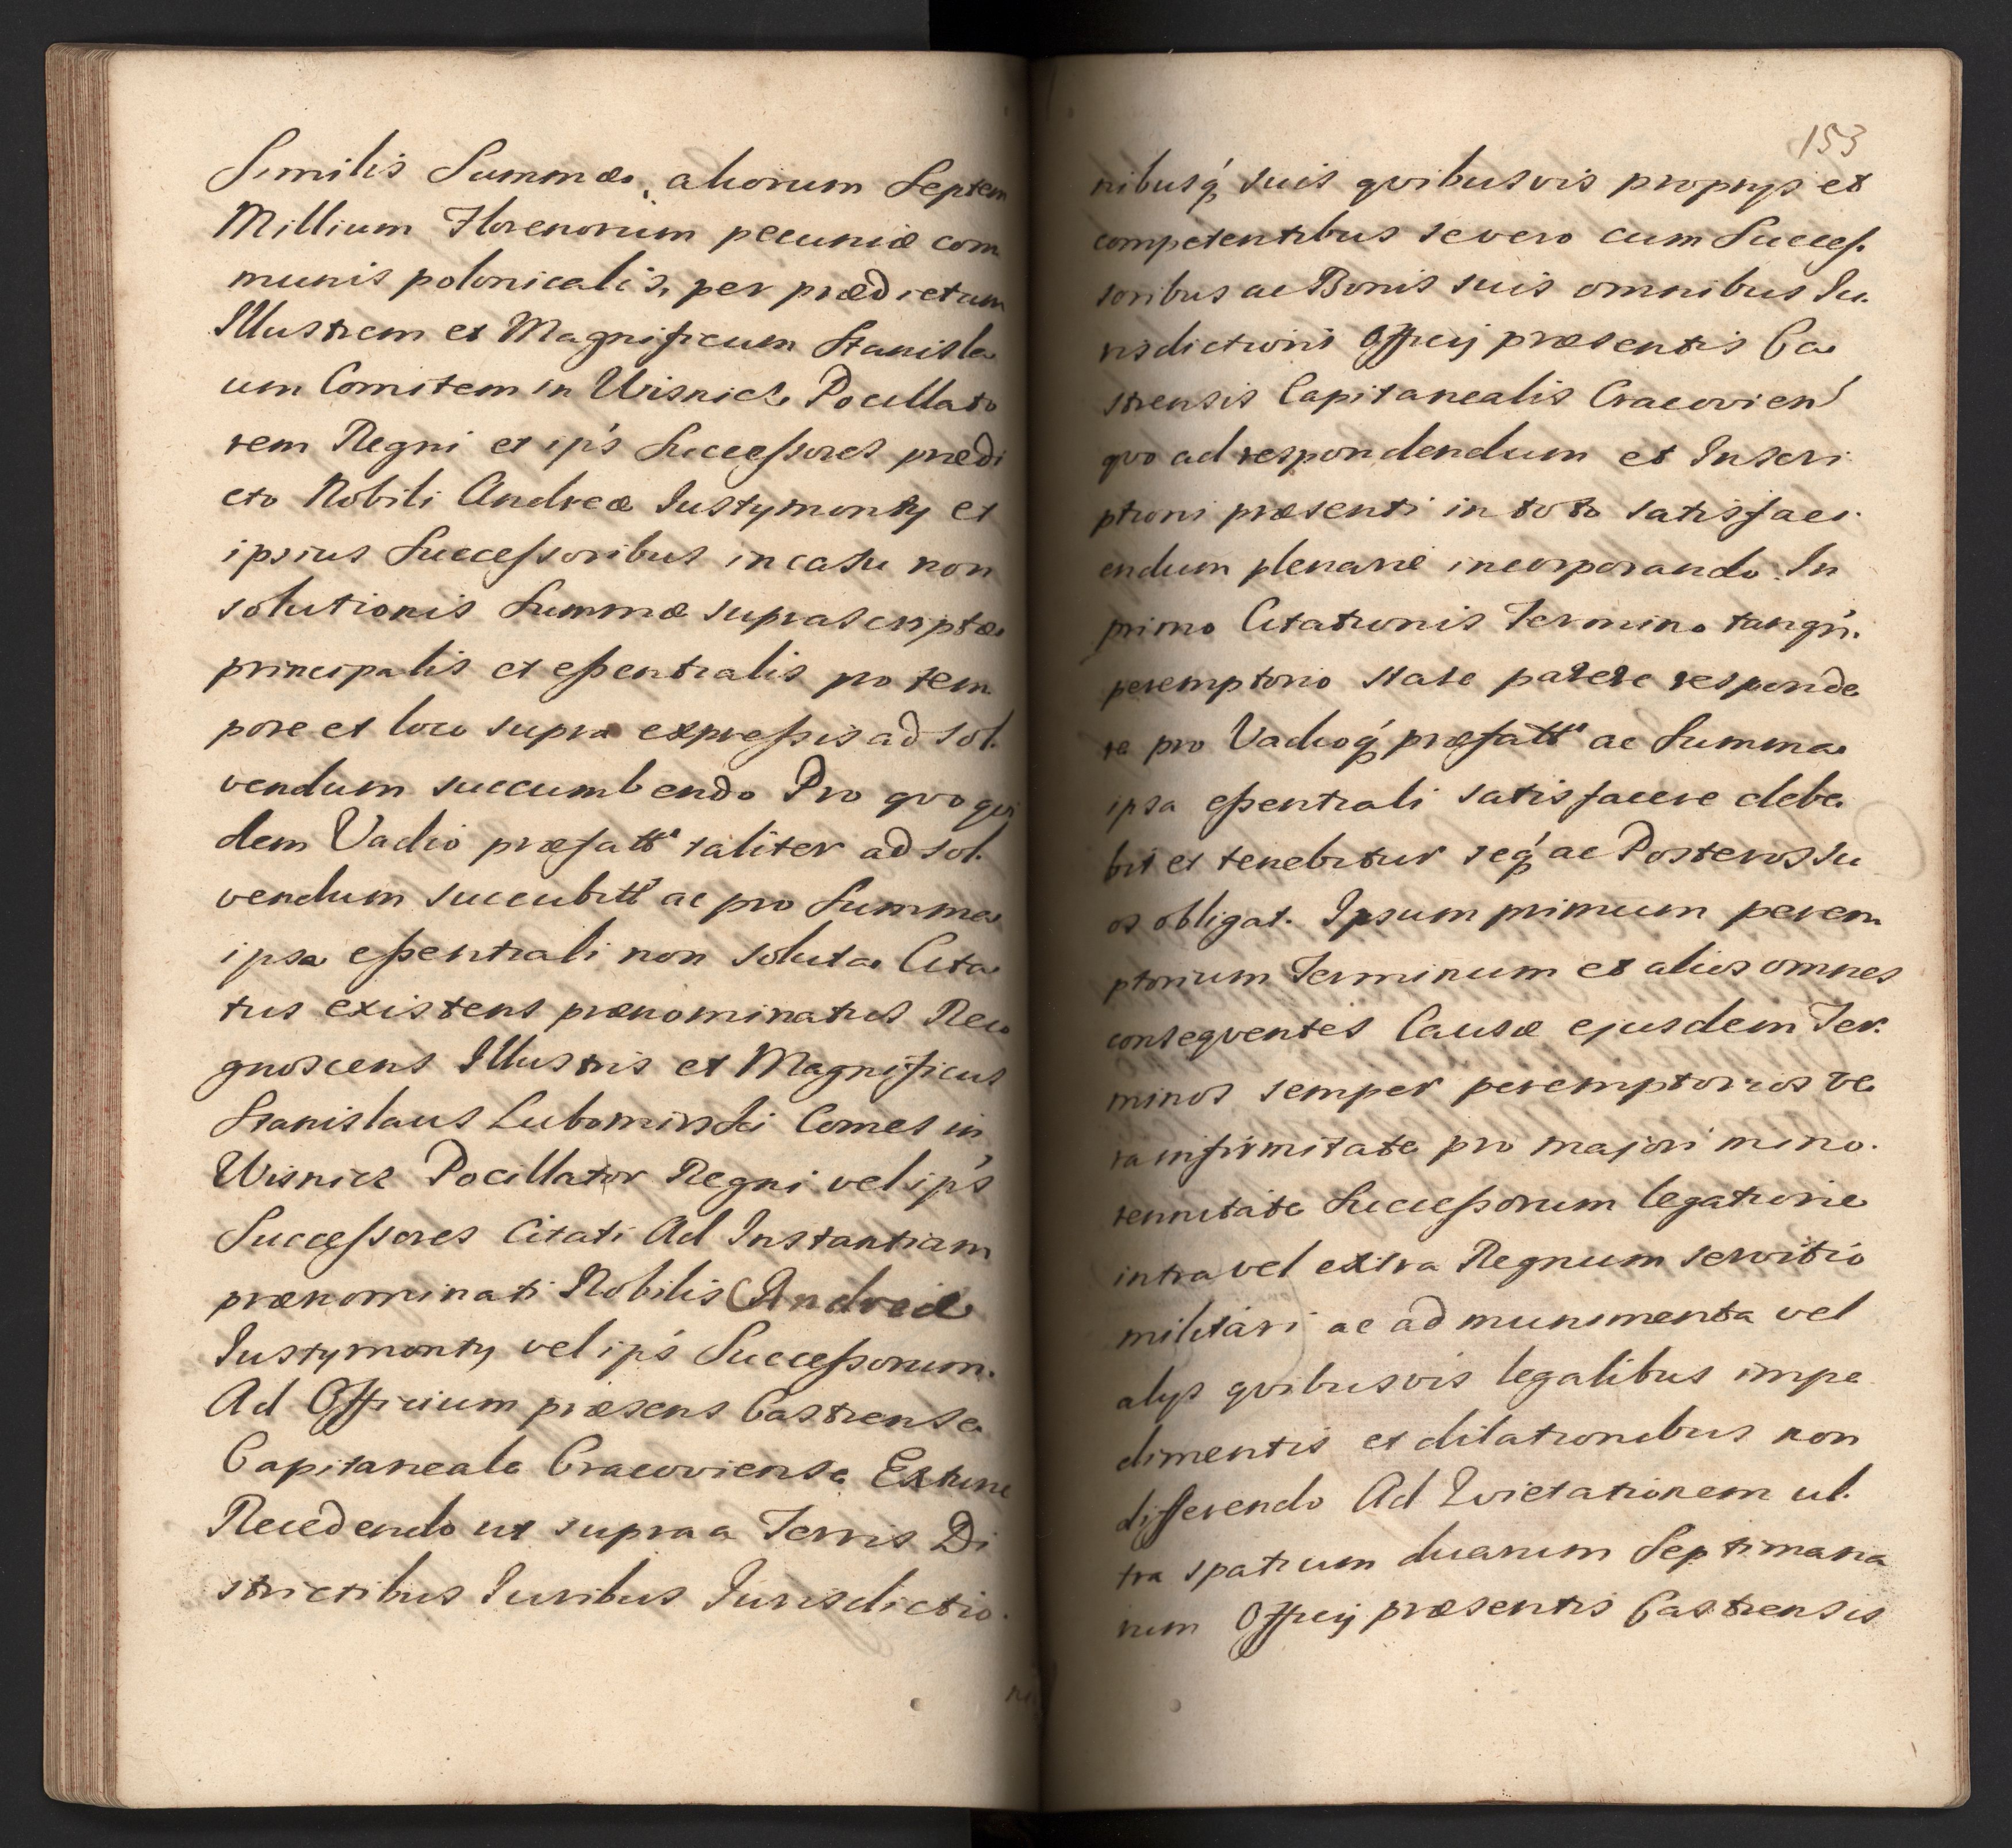 Similis Summæ, aliorum Septem
Millium Florenorum pecuniæ com
munis polonicalis, per prædictum
Illustrem et Magnificum Stanisla
um Comitem in Wisnicz Pocillato
rem Regni et ip's Successores prædi
cto Nobili Andreæ Iustymonty et
ipsius Successoribus in casu non
solutionis Summæ suprascriptæ
principalis et essentialis pro tem
pore et loco supra expressis ad sol.
vendum succumbendo Pro quo qui
dem Vadio præfatt' taliter ad sol.
vendum succubitt' ac pro Summa
ipsa essentiali non soluta Cita
tus existens prænominatus Reco
gnoscens Illustris et Magnificus
Stanislaus Lubomirski Comes in
Wisnicz Pocillator Regni vel ip's
Successores Citati Ad Instantiam
prænominati Nobilis Andreæ
Iustymonty vel ip's Successorum.
Ad Officium præsens Castrense
Capitaneale Cracoviense Extunc
Recedendo ut supra a Terris Di
strictibus Iuribus Iurisdictio.
153
nibusq́ suis qvibusvis proprijs et
competentibus se vero cum Succes.
soribus ac Bonis suis omnibus Iu.
risdictioni Officij præsentis Ca
strensis Capitanealis Cracovien'
qvo ad respondendum et Inscri
ptioni præsenti in toto satisfaci.
endum plenarie incorporando. In
primo Citationis Termino tanqń.
peremptorio stare parere responde
re pro Vadioq́ præfatt' ac Summa
ipsa essentiali satisfacere debe
bit et tenebitur seq́ ac Posteros su
os obligat. Ipsum primum perem
ptorium Terminum et alios omnes
conseqventes Causæ ejusdem Ter.
minos semper peremptorios ve
ra infirmitate pro majori mino.
rennitate Successorum legatione
intra vel extra Regnum servitio
militari ac ad munimenta vel
alijs qvibusvis legalibus impe
dimentis et dilationibus non
differendo Ad Evictationem ul.
tra spatium duarum Septimana
rum Officij præsentis Castrensis